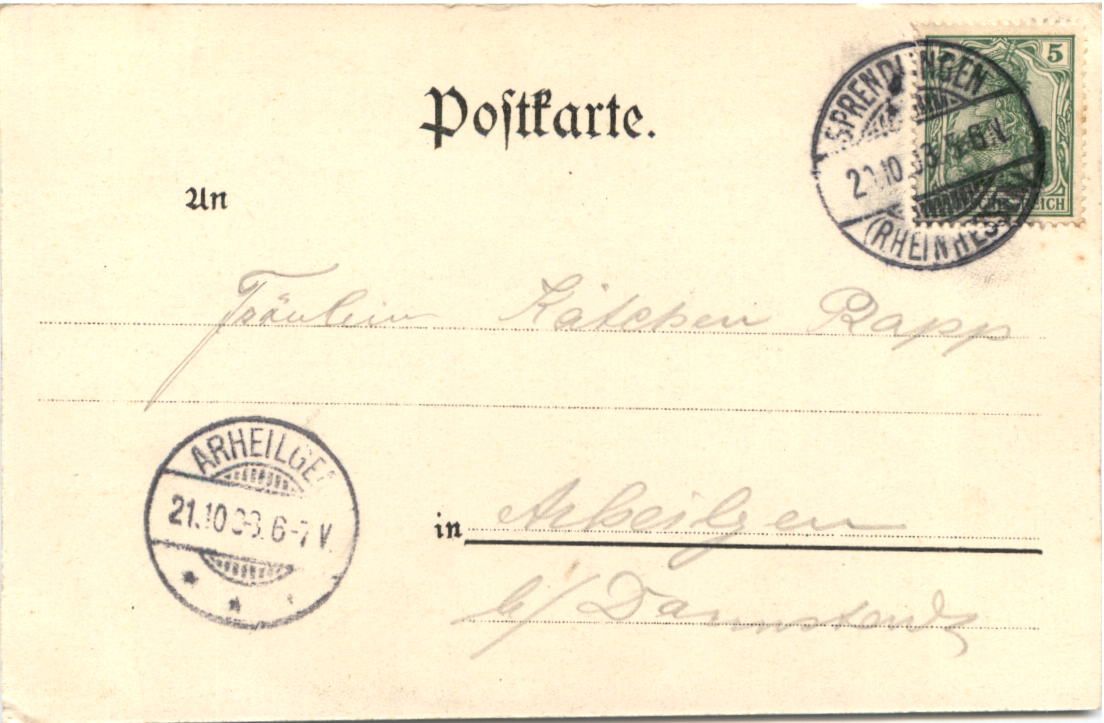 Postkarte.
5
SPRENDLINGEN
(RHEINHESS
An
Fräulein Kätchen Rapp
ARHEILGEN
21.10 03. 6-7 V.
in Arheilgen
b/ Darmstadt